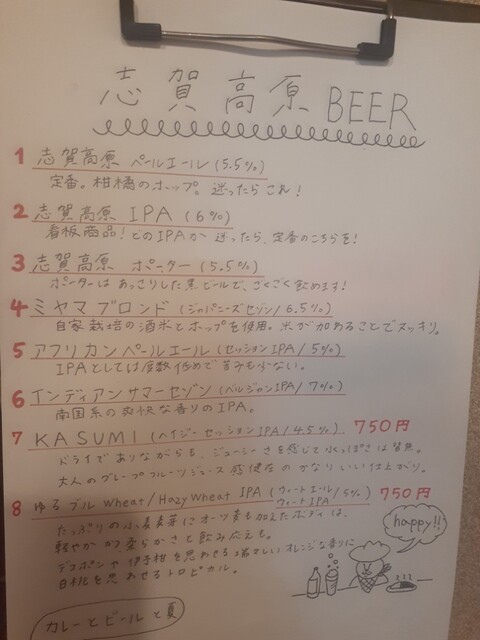 志賀高原 BEER
1 志賀高原 ペールエール (5.5%)
定番。柑橘のホップ。迷ったらこれ!
2 志賀高原 IPA (6%)
看板商品!どのIPAか迷ったら、定番のこちらを!
3 志賀高原 ポーター (5.5%)
ポーターはあっさりした黒ビールで、ごくごく飲めます!
4 ミヤマブロンド (ジャパニーズセゾン/6.5%)
自家栽培の酒米とホップを使用。米が加わることでスッキリ。
5 アフリカンペールエール (セッションIPA/5%)
IPAとしては度数低めで苦みも少ない。
6 インディアンサマーセゾン (ベルジャンIPA/7%)
南国系の爽快な香りのIPA。
7 KASUMI (ヘイジーセッションIPA/4.5%) 750円
ドライでありながらも、ジューシーさを感じて水っぽさは皆無。
大人のグレープフルーツジュース感健在のかなりいい仕上がり。
8 ゆるブル Wheat/Hazy Wheat IPA (ウィートエール/5%) 750円
ウィートIPA
たっぷりの小麦麦芽にオーツ麦も加えたボディは、
軽やかかつ柔らかさと飲み応えも。
デコポンや伊予柑を思わせる瑞々しいオレンジな香りに
白桃を思わせるトロピカル。
happy!!
カレーとビールと夏